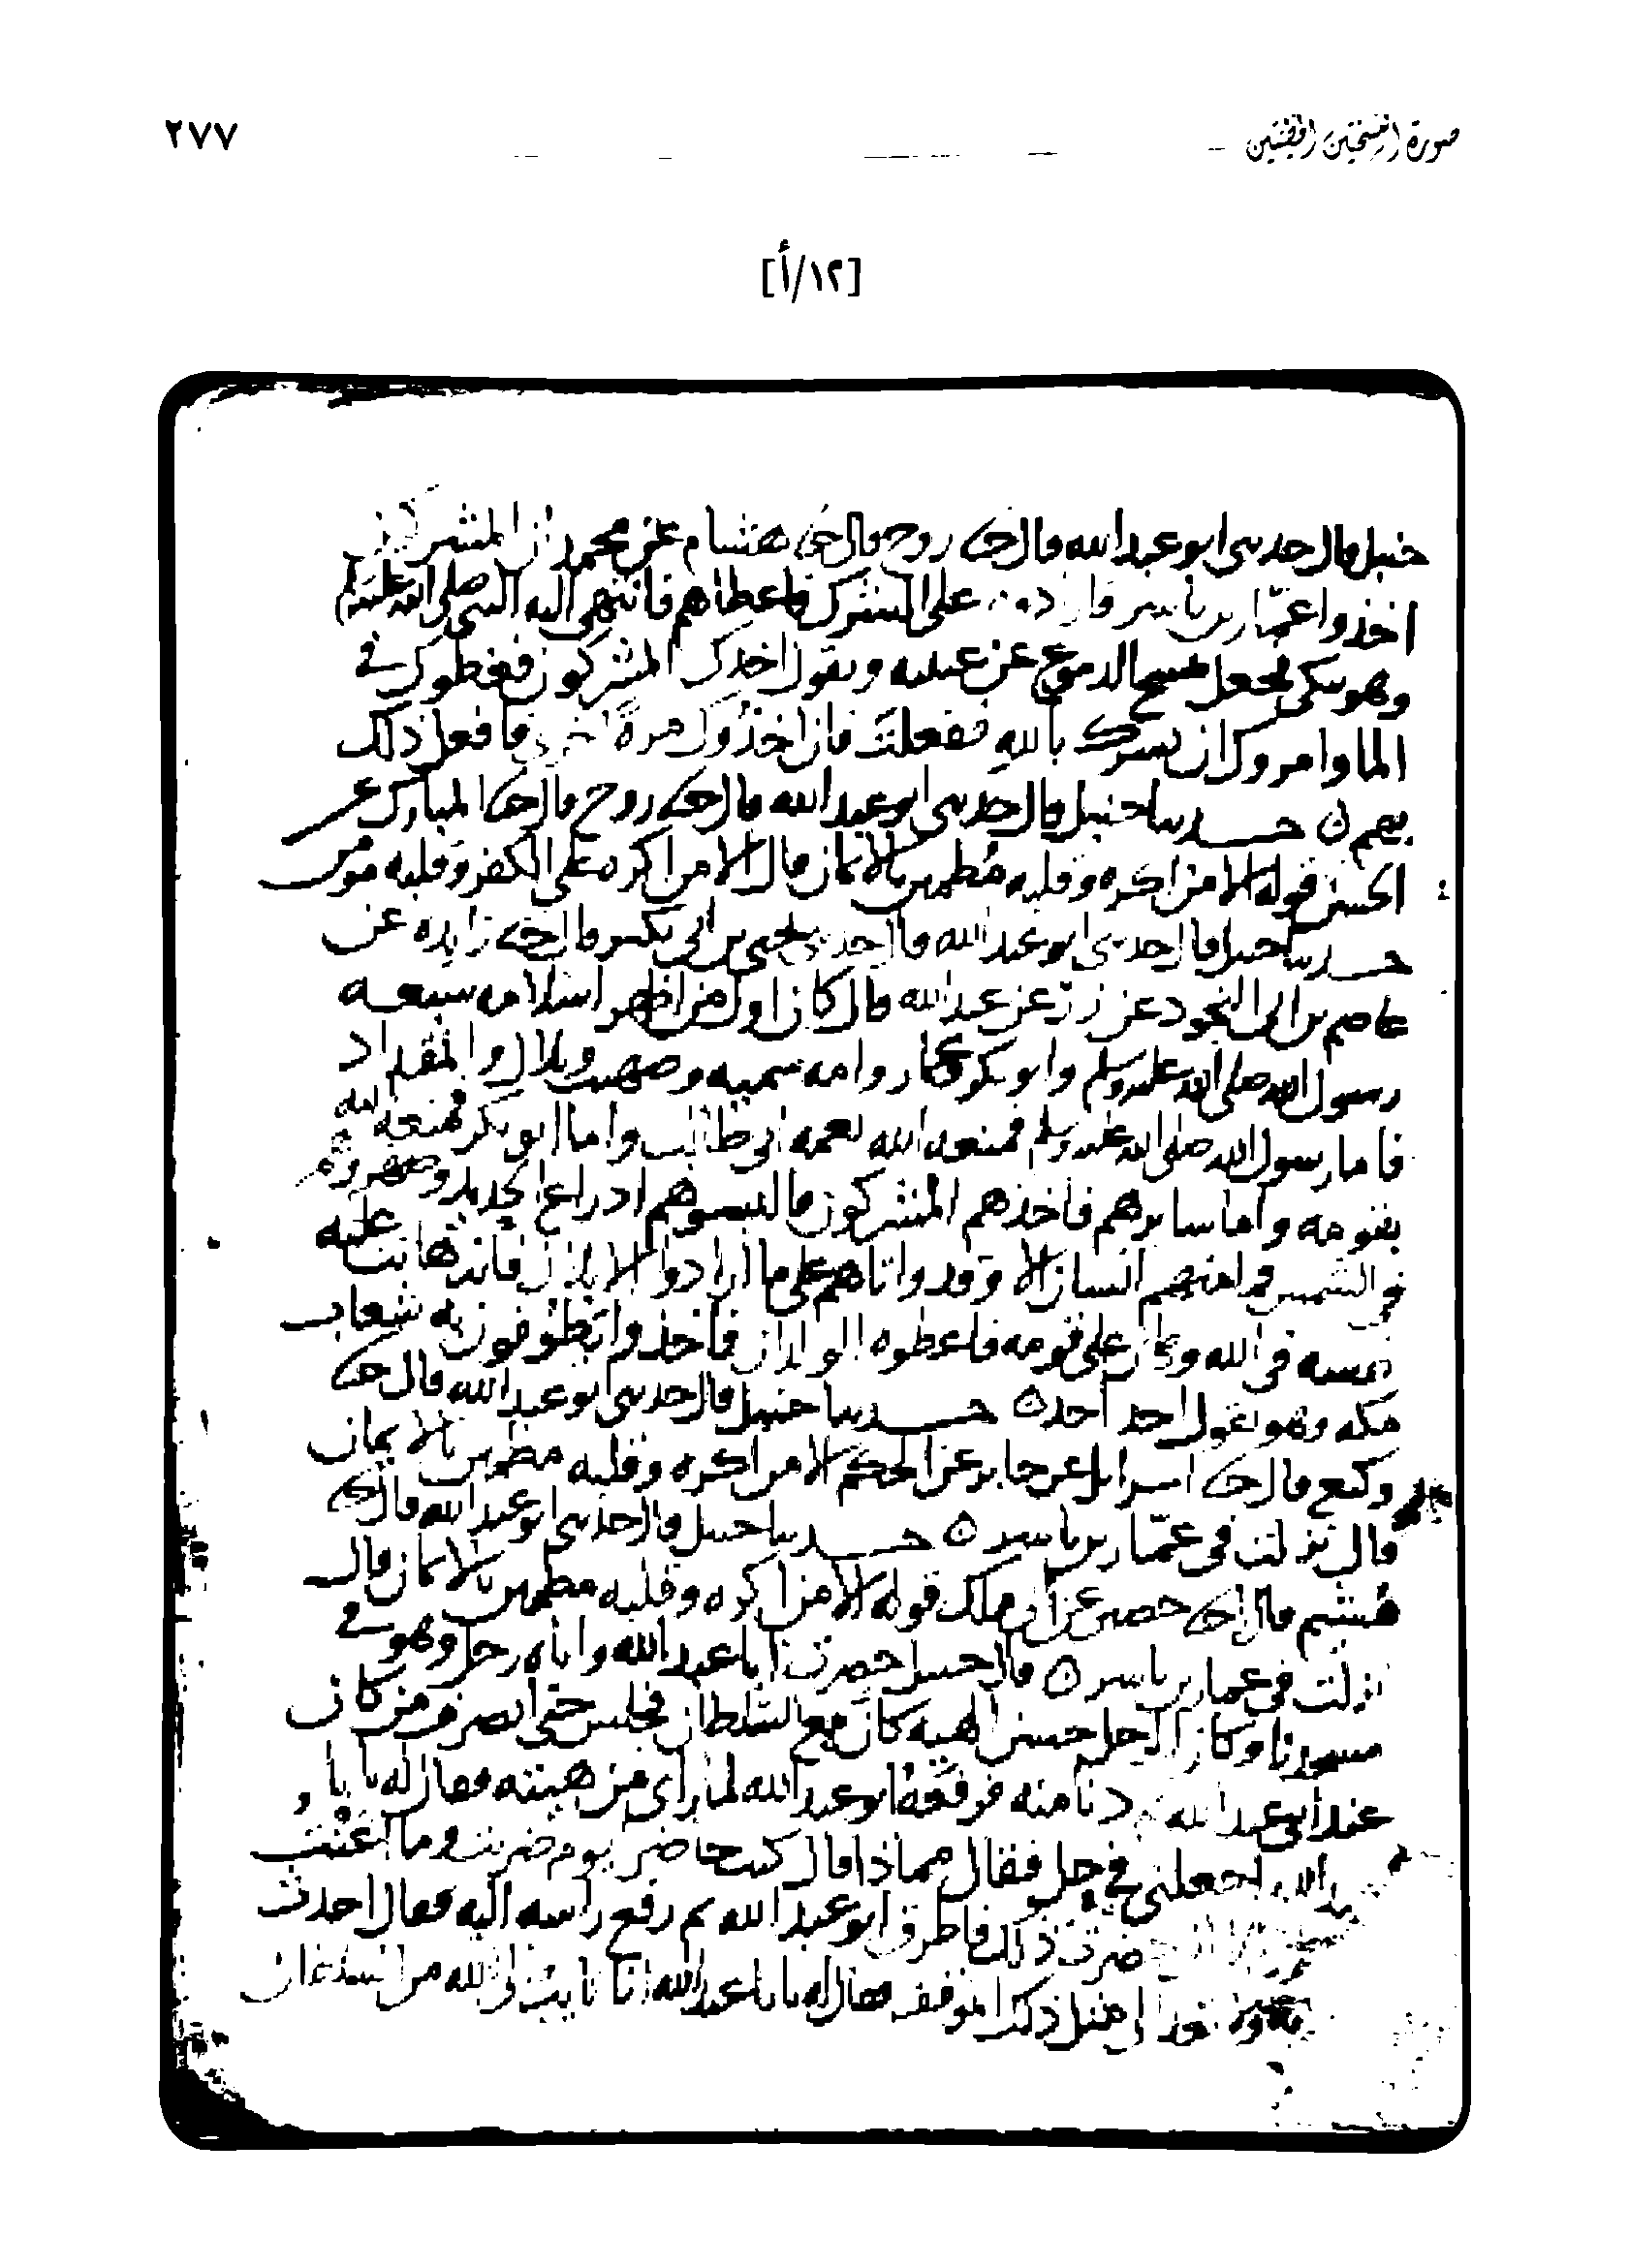 صورة النسختين الخطيتين
٢٧٧
[١٢/أ]
حنبل قال حدثني ابو عبد الله قال حدثنا روح قال حدثنا هشام عن محمد ان المشركين
اخذوا عمّار بن ياسر على الشرك فاعطاهم فانتهى اليه النبي صلى الله عليه وسلم
وهو يبكي فجعل يمسح الدموع عن عينيه ويقول اخذك المشركون فغطوك في
الما وامروك ان تشرك بالله ففعلت فان اخذوك مرةً اخرى فافعل ذلك
بهم ن حدثنا حنبل قال حدثني ابو عبد الله قال حدثنا روح قال حدثنا المبارك عن
الحسن قوله الا من اكره وقلبه مُطمئن بالايمان قال الا من اكره على الكفر وقلبه مومن
حدثنا حنبل قال حدثني ابو عبد الله قال حدثني يحيى بن ابي بكير قال حدثنا زايده عن
عاصم بن ابي النجود عن زرّ عن عبد الله قال كان اول من اظهر اسلامه سبعه
رسول الله صلى الله عليه وسلم وابو بكر وعمار وامه سميه وصهيب وبلال والمقداد
فاما رسول الله صلى الله عليه وسلم فمنعه الله بعمه ابي طالب واما ابو بكر فمنعه الله
بقومه واما سايرهم فاخذهم المشركون فالبسوهم ادراع الحديد وصهروهم
في الشمس فما منهم انسان الا وقد واتاهم على ما ارادوا الا بلال فانه هانت عليه
نفسه في الله وهان على قومه فاعطوه الولدان فاخذوا يطوفون به شعاب
مكه وهو يقول احد احد ن حدثنا حنبل قال حدثني ابو عبد الله قال حدثنا
وكيع قال حدثنا اسرايل عن جابر عن الحكم الا من اكره وقلبه مطمئن بالايمان
قال نزلت في عمّار بن ياسر ن حدثنا حنبل قال حدثني ابو عبد الله قال حدثنا
هُشيم قال حصين عن ابي ملك قوله الا من اكره وقلبه مطمئن بالايمان قال
نزلت في عمار بن ياسر ن قال حنبل حضرت ابا عبد الله واتاه رجل وهو في
مسجدنا وكان الرجل حسن الهيه كان مع السلطان فجلس حتى انصرف من كان
عند ابي عبد الله ثم دنا منه فرفعه ابو عبد الله لما راى من هيئته فقال له يا با
عبد الله اجعلني في حل فقال مماذا قال كنت حاضر يوم ضربت وما اعنت
حضرت ذلك فاطرق ابو عبد الله ثم رفع راسه اليه فقال احدث
مثل ذلك الموقف فقال له يا با عبد الله انا تايب الى الله من السلطان